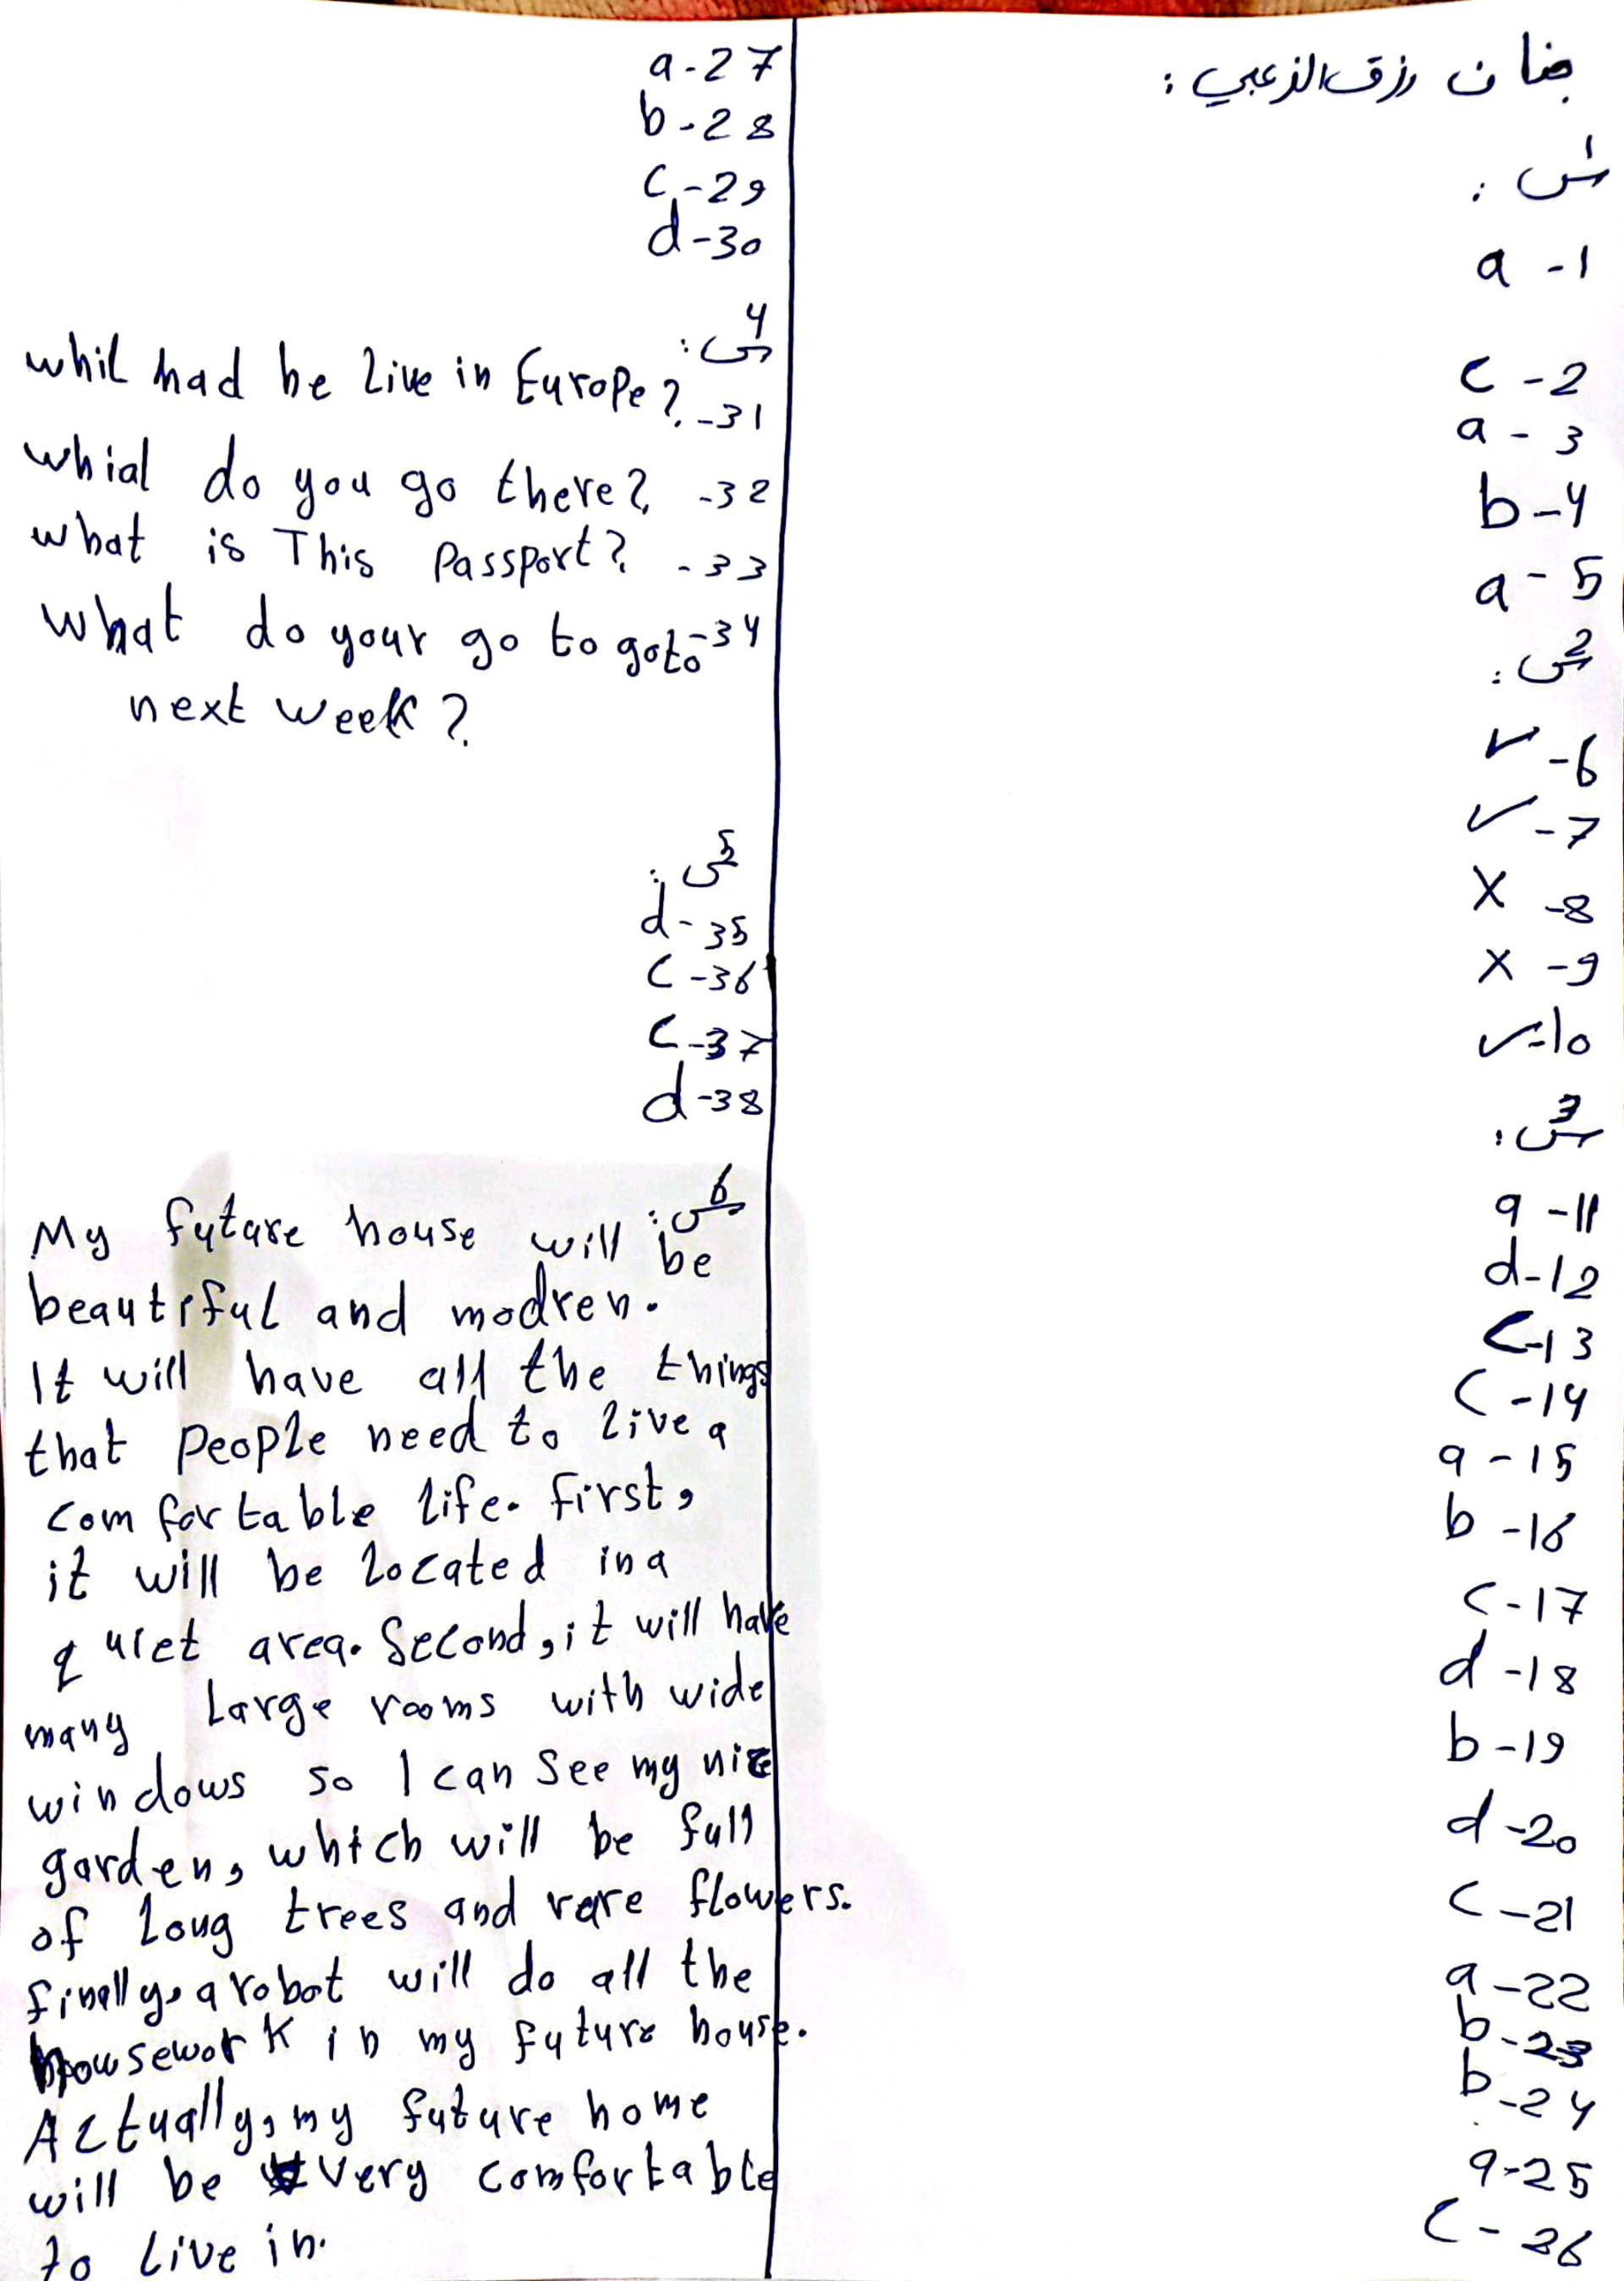 جنان رزق الزعبي :
س1 :
a -1
c -2
a - 3
b-4
a - 5
س2 :
✓ -6
✓ -7
X -8
X -9
✓-10
س3 :
a -11
d-12
c-13
c -14
a -15
b -16
c -17
d -18
b -19
d -20
c -21
a -22
b -23
b -24
a-25
c - 26
a-27
b-28
c-29
d-30
س4 :
whil had he live in Europe? -31
whial do you go there? -32
what is This Passport? -33
what do your go to goto -34
next week?
س5 :
d-35
c-36
c-37
d-38
س6 :
My future house will be
beautiful and modren.
It will have all the things
that people need to live a
comfortable life. first,
it will be located in a
quiet area. Second, it will have
many large rooms with wide
windows so I can see my nice
garden, which will be full
of long trees and rare flowers.
finally, a robot will do all the
housework in my future house.
Actually, my future home
will be very comfortable
to live in.